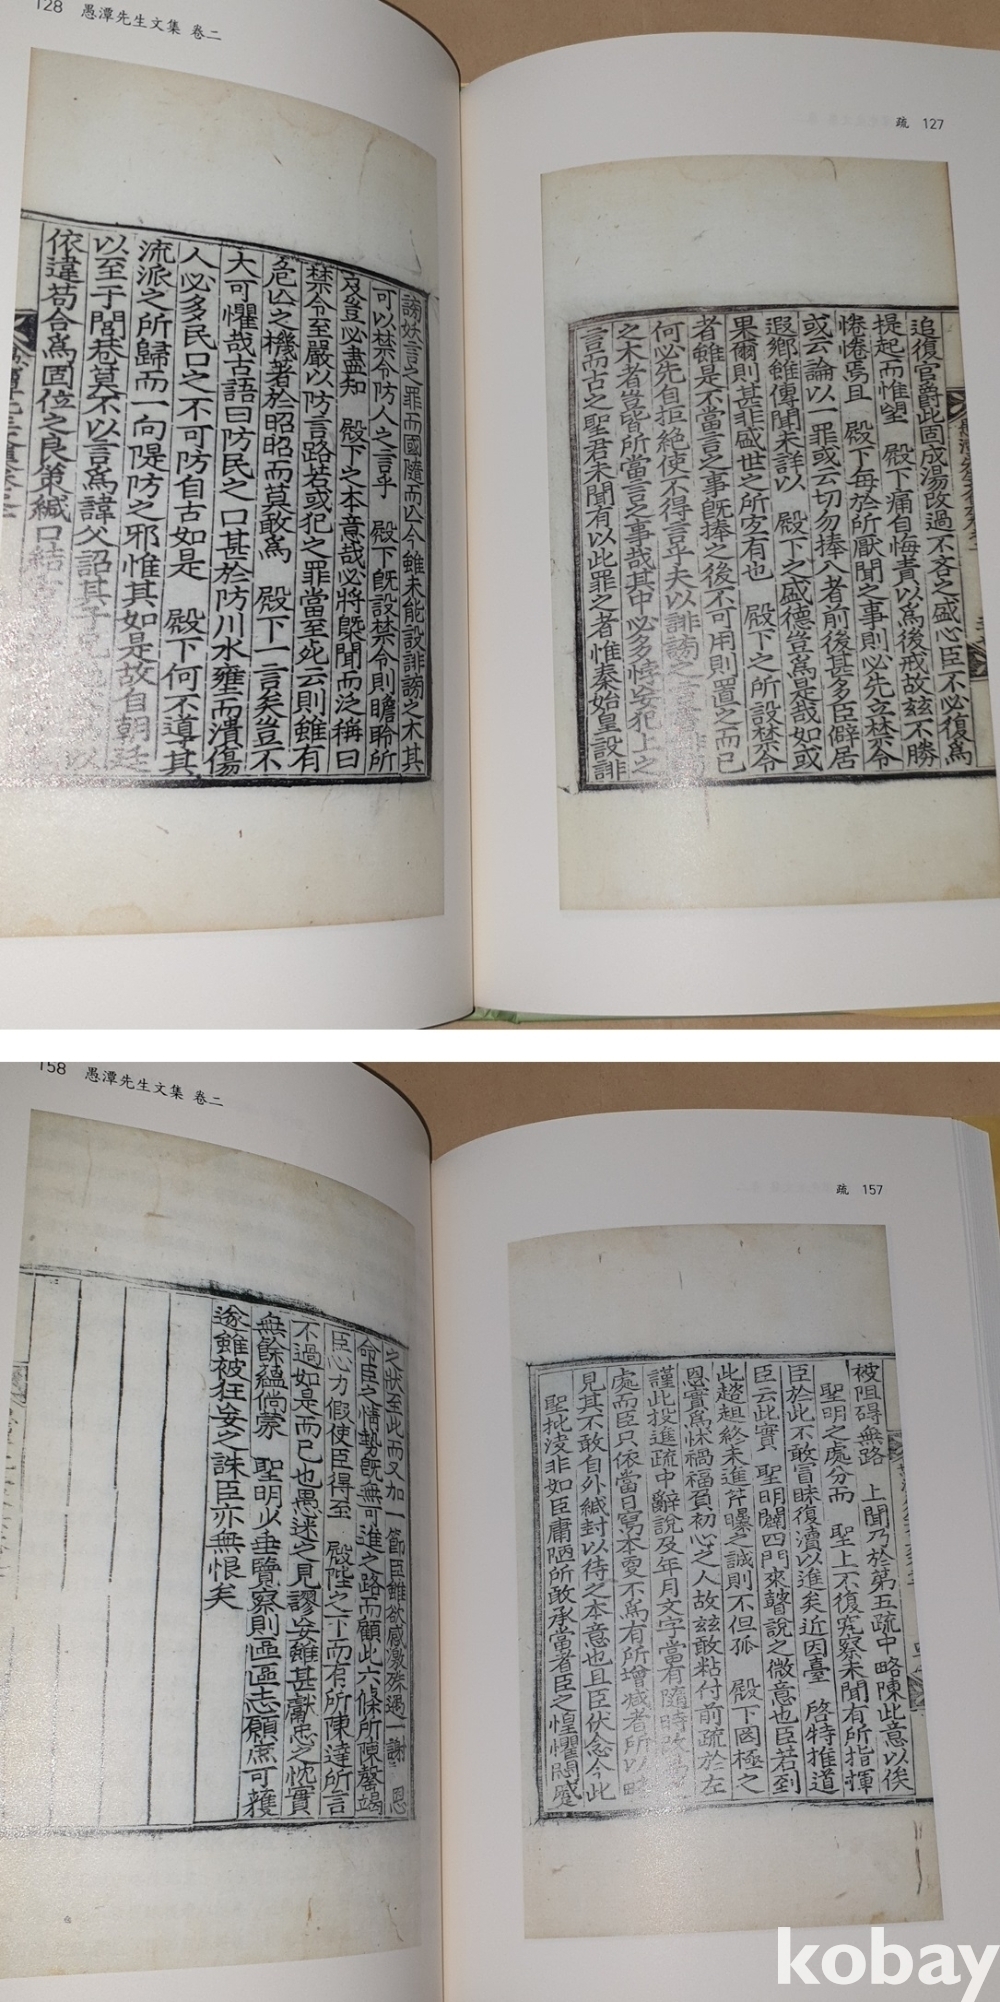 疏 127
追復官爵此固成湯改過不吝之盛心臣不必復爲
提起而惟望 殿下痛自悔責以爲後戒故玆不勝
惓惓焉且 殿下每於所厭聞之事則必先立禁令
或云論以一罪或云切勿捧入者前後甚多臣僻居
遐鄕雖傳聞未詳以 殿下之盛德豈爲是哉如或
果爾則甚非盛世之所宜有也 殿下之所設禁令
者雖是不當言之事旣捧之後不可用則置之而已
何必先自拒絶使不得言乎夫以誹謗之
之木者豈皆所當言之事哉其中必多悖妄犯上之
言而古之聖君未聞有以此罪之者惟秦始皇設誹
128 愚潭先生文集 卷二
謗妖言之罪而國隨而亡今雖未能設誹謗之木其
可以禁令防人之言乎 殿下旣設禁令則瞻聆所
及豈必盡知 殿下之本意哉必將槩聞而泛稱曰
禁令至嚴以防言路若或犯之罪當至死云則雖有
危亡之機著於昭昭而莫敢爲 殿下一言矣豈不
大可懼哉古語曰防民之口甚於防川水壅而潰傷
人必多民口之不可防自古如是 殿下何不導其
流派之所歸而一向隄防之邪惟其如是故自朝廷
以至于閭巷莫不以言爲諱父詔其子兄 以
依違苟合爲固位之良策緘口結
疏 157
被阻碍無路 上聞乃於第五疏中略陳此意以俟
聖明之處分而 聖上不復究察未聞有所指揮
臣於此不敢冒昧復瀆以進矣近因臺 啓特推道
臣云此實 聖明闢四門來瞽說之微意也臣若到
此趑趄終未進芹曝之誠則不但孤 殿下罔極之
恩實爲怵禍福負初心之人故玆敢粘付前疏於左
謹此投進疏中辭說及年月文字當有隨時
處而臣只依當日寫本更不爲有所增減者所以
見其不敢自外緘封以待之本意也且臣伏念今此
聖批決非如臣庸陋所敢承當者臣之惶懼悶蹙
158 愚潭先生文集 卷二
之狀至此而又加一節臣雖欲感激殊遇一謝 恩
命臣之情勢旣無可進之路而顧此六條所陳罄竭
臣心力假使臣得至 殿陛之下而有所陳達所言
不過如是而已也愚迷之見謬妄雖甚獻忠之忱實
無餘蘊倘蒙 聖明以垂覽察則區區志願庶可獲
遂雖被狂妄之誅臣亦無恨矣
kobay